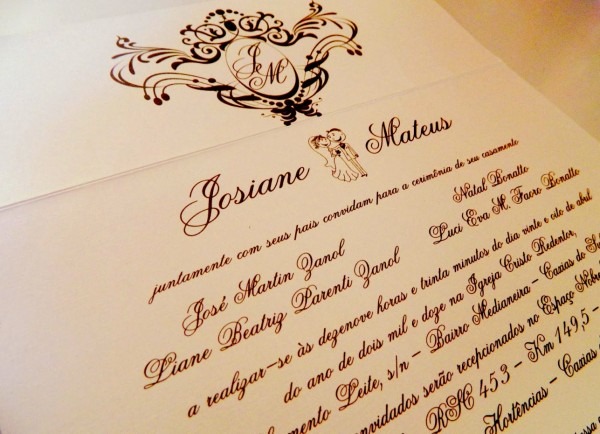 J M
Josiane Mateus
juntamente com seus pais convidam para a cerimônia de seu casamento
José Martin Zanol Natal Bonatto
Liane Beatriz Parenti Zanol Luci Eva M. Facro Bonatto
a realizar-se às dezenove horas e trinta minutos do dia vinte e oito de abril
do ano de dois mil e doze na Igreja Cristo Redentor,
Leite, s/n - Bairro Medianeira - Caxias do
serão recepcionados no Espaço
453 - Km 149,5 -
Hortências - Caxias